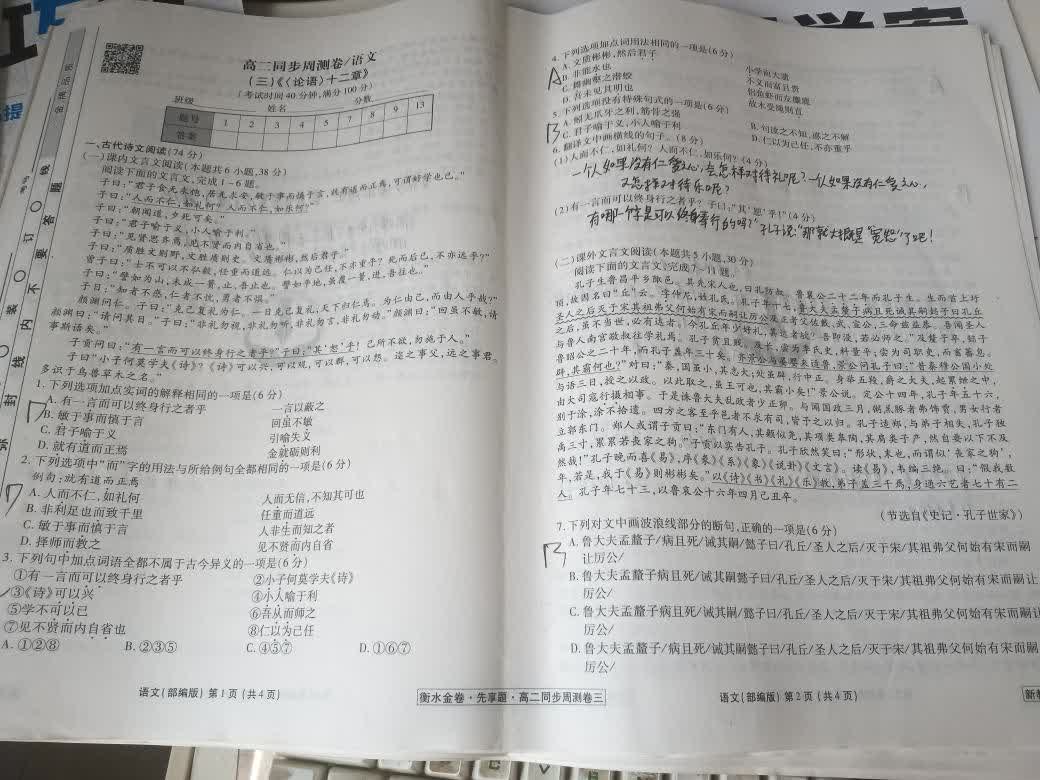 高二同步周测卷/语文
(三)《〈论语〉十二章》
(考试时间40分钟,满分100分)
班级 姓名 分数
题号 1 2 3 4 5 7 8 9 13
答案
一、古代诗文阅读(74分)
(一)课内文言文阅读(本题共6小题,38分)
阅读下面的文言文,完成1~6题。
子曰:“君子食无求饱,居无求安,敏于事而慎于言,就有道而正焉,可谓好学也已。”
子曰:“人而不仁,如礼何?人而不仁,如乐何?”
子曰:“朝闻道,夕死可矣。”
子曰:“君子喻于义,小人喻于利。”
子曰:“见贤思齐焉,见不贤而内自省也。”
子曰:“质胜文则野,文胜质则史。文质彬彬,然后君子。”
曾子曰:“士不可以不弘毅,任重而道远。仁以为己任,不亦重乎?死而后已,不亦远乎?”
子曰:“譬如为山,未成一篑,止,吾止也。譬如平地,虽覆一篑,进,吾往也。”
子曰:“知者不惑,仁者不忧,勇者不惧。”
颜渊问仁。子曰:“克己复礼为仁。一日克己复礼,天下归仁焉。为仁由己,而由人乎哉?”
颜渊曰:“请问其目。”子曰:“非礼勿视,非礼勿听,非礼勿言,非礼勿动。”颜渊曰:“回虽不敏,请
事斯语矣。”
子贡问曰:“有一言而可以终身行之者乎?”子曰:“其‘恕’乎!己所不欲,勿施于人。”
子曰“小子何莫学夫《诗》?《诗》可以兴,可以观,可以群,可以怨。迩之事父,远之事君。
多识于鸟兽草木之名。”
1. 下列选项加点实词的解释相同的一项是(6分)
A. 有一言而可以终身行之者乎 一言以蔽之
B. 敏于事而慎于言 回虽不敏
C. 君子喻于义 引喻失义
D. 就有道而正焉 金就砺则利
2. 下列选项中“而”字的用法与所给例句全都相同的一项是(6分)
例句:就有道而正焉
A. 人而不仁,如礼何 人而无信,不知其可也
B. 非利足也而致千里 任重而道远
C. 敏于事而慎于言 人非生而知之者
D. 择师而教之 见不贤而内自省
3. 下列句中加点词语全都不属于古今异义的一项是(6分)
①有一言而可以终身行之者乎 ②小子何莫学夫《诗》
③《诗》可以兴 ④小人喻于利
⑤学不可以已 ⑥吾从而师之
⑦见不贤而内自省也 ⑧仁以为己任
A. ①②⑧ B. ②③⑤ C. ④⑤⑦ D. ①⑥⑦
语文(部编版) 第1页(共4页)
4. 下列选项加点词用法相同的一项是(6分)
A. 文质彬彬,然后君子 小学而大遗
B. 非能水也 不义而富且贵
C. 舞幽壑之潜蛟 侣鱼虾而友麋鹿
D. 吾未见其明也 故木受绳则直
5. 下列选项没有特殊句式的一项是(6分)
A. 蚓无爪牙之利,筋骨之强 B. 句读之不知,惑之不解
C. 君子喻于义,小人喻于利 D. 仁以为己任,不亦重乎
6. 翻译文中画横线的句子。(8分)
(1)人而不仁,如礼何?人而不仁,如乐何?(4分)
一个人如果没有仁爱之心,会怎样对待礼呢?一个人如果没有仁爱之心,
又怎样对待乐呢?
(2)有一言而可以终身行之者乎?子曰:“其‘恕’乎!”(4分)
有哪一个字是可以终身奉行的吗?”孔子说:“那就大概是“宽恕”了吧!
(二)课外文言文阅读(本题共5小题,30分)
阅读下面的文言文,完成7~11题。
孔子生鲁昌平乡陬邑。其先宋人也,曰孔防叔。鲁襄公二十二年而孔子生。生而首上圩
顶,故因名曰“丘”云。字仲尼,姓孔氏。孔子年十七,鲁大夫孟釐子病且死诫其嗣懿子曰孔丘
圣人之后灭于宋其祖弗父何始有宋而嗣让厉公及正考父佐戴、武、宣公,三命兹益恭。吾闻圣人
之后,虽不当世,必有达者。今孔丘年少好礼,其达者欤?吾即没,若必师之。”及釐子卒,懿子
与鲁人南宫敬叔往学礼焉。孔子贫且贱。及长,尝为季氏史,料量平;尝为司职吏,而畜蕃息。
鲁昭公之二十年,而孔子盖年三十矣。齐景公与晏婴来适鲁,景公问孔子曰:“昔秦穆公国小处
辟,其霸何也?”对曰:“秦,国虽小,其志大;处虽辟,行中正。身举五羖,爵之大夫,起累绁之中,
与语三日,授之以政。以此取之,虽王可也,其霸小矣!”景公说。定公十四年,孔子年五十六,
由大司寇行摄相事。于是诛鲁大夫乱政者少正卯。与闻国政三月,粥羔豚者弗饰贾,男女行者
别于涂,涂不拾遗。四方之客至乎邑者不求有司,皆予之以归。孔子适郑,与弟子相失,孔子独
立郭东门。郑人或谓子贡曰:“东门有人,其颡似尧,其项类皋陶,其肩类子产,然自要以下不及
禹三寸,累累若丧家之狗。”子贡以实告孔子。孔子欣然笑曰:“形状,末也,而谓似‘丧家之狗’,
然哉!”孔子晚而喜《易》,序《彖》《系》《象》《说卦》《文言》。读《易》,韦编三绝。曰:“假我数
年,若是,我于《易》则彬彬矣。”以《诗》《书》《礼》《乐》教,弟子盖三千焉,身通六艺者七十有二
人。孔子年七十三,以鲁哀公十六年四月己丑卒。
(节选自《史记·孔子世家》)
7. 下列对文中画波浪线部分的断句,正确的一项是(6分)
A. 鲁大夫孟釐子/病且死/诫其嗣/懿子曰/孔丘/圣人之后/灭于宋/其祖弗父何始有宋而嗣
让厉公/
B. 鲁大夫孟釐子/病且死/诫其嗣懿子曰/孔丘/圣人之后/灭于宋/其祖弗父何始有宋而嗣让
厉公/
C. 鲁大夫孟釐子病且死/诫其嗣/懿子曰/孔丘/圣人之后/灭于宋/其祖弗父何始有宋而嗣让
厉公/
D. 鲁大夫孟釐子/病且死/诫其嗣懿子曰/孔丘/圣人之后/灭于宋/其祖弗父何始有宋而嗣
厉公/
语文(部编版) 第2页(共4页)
衡水金卷·先享题·高二同步周测卷三